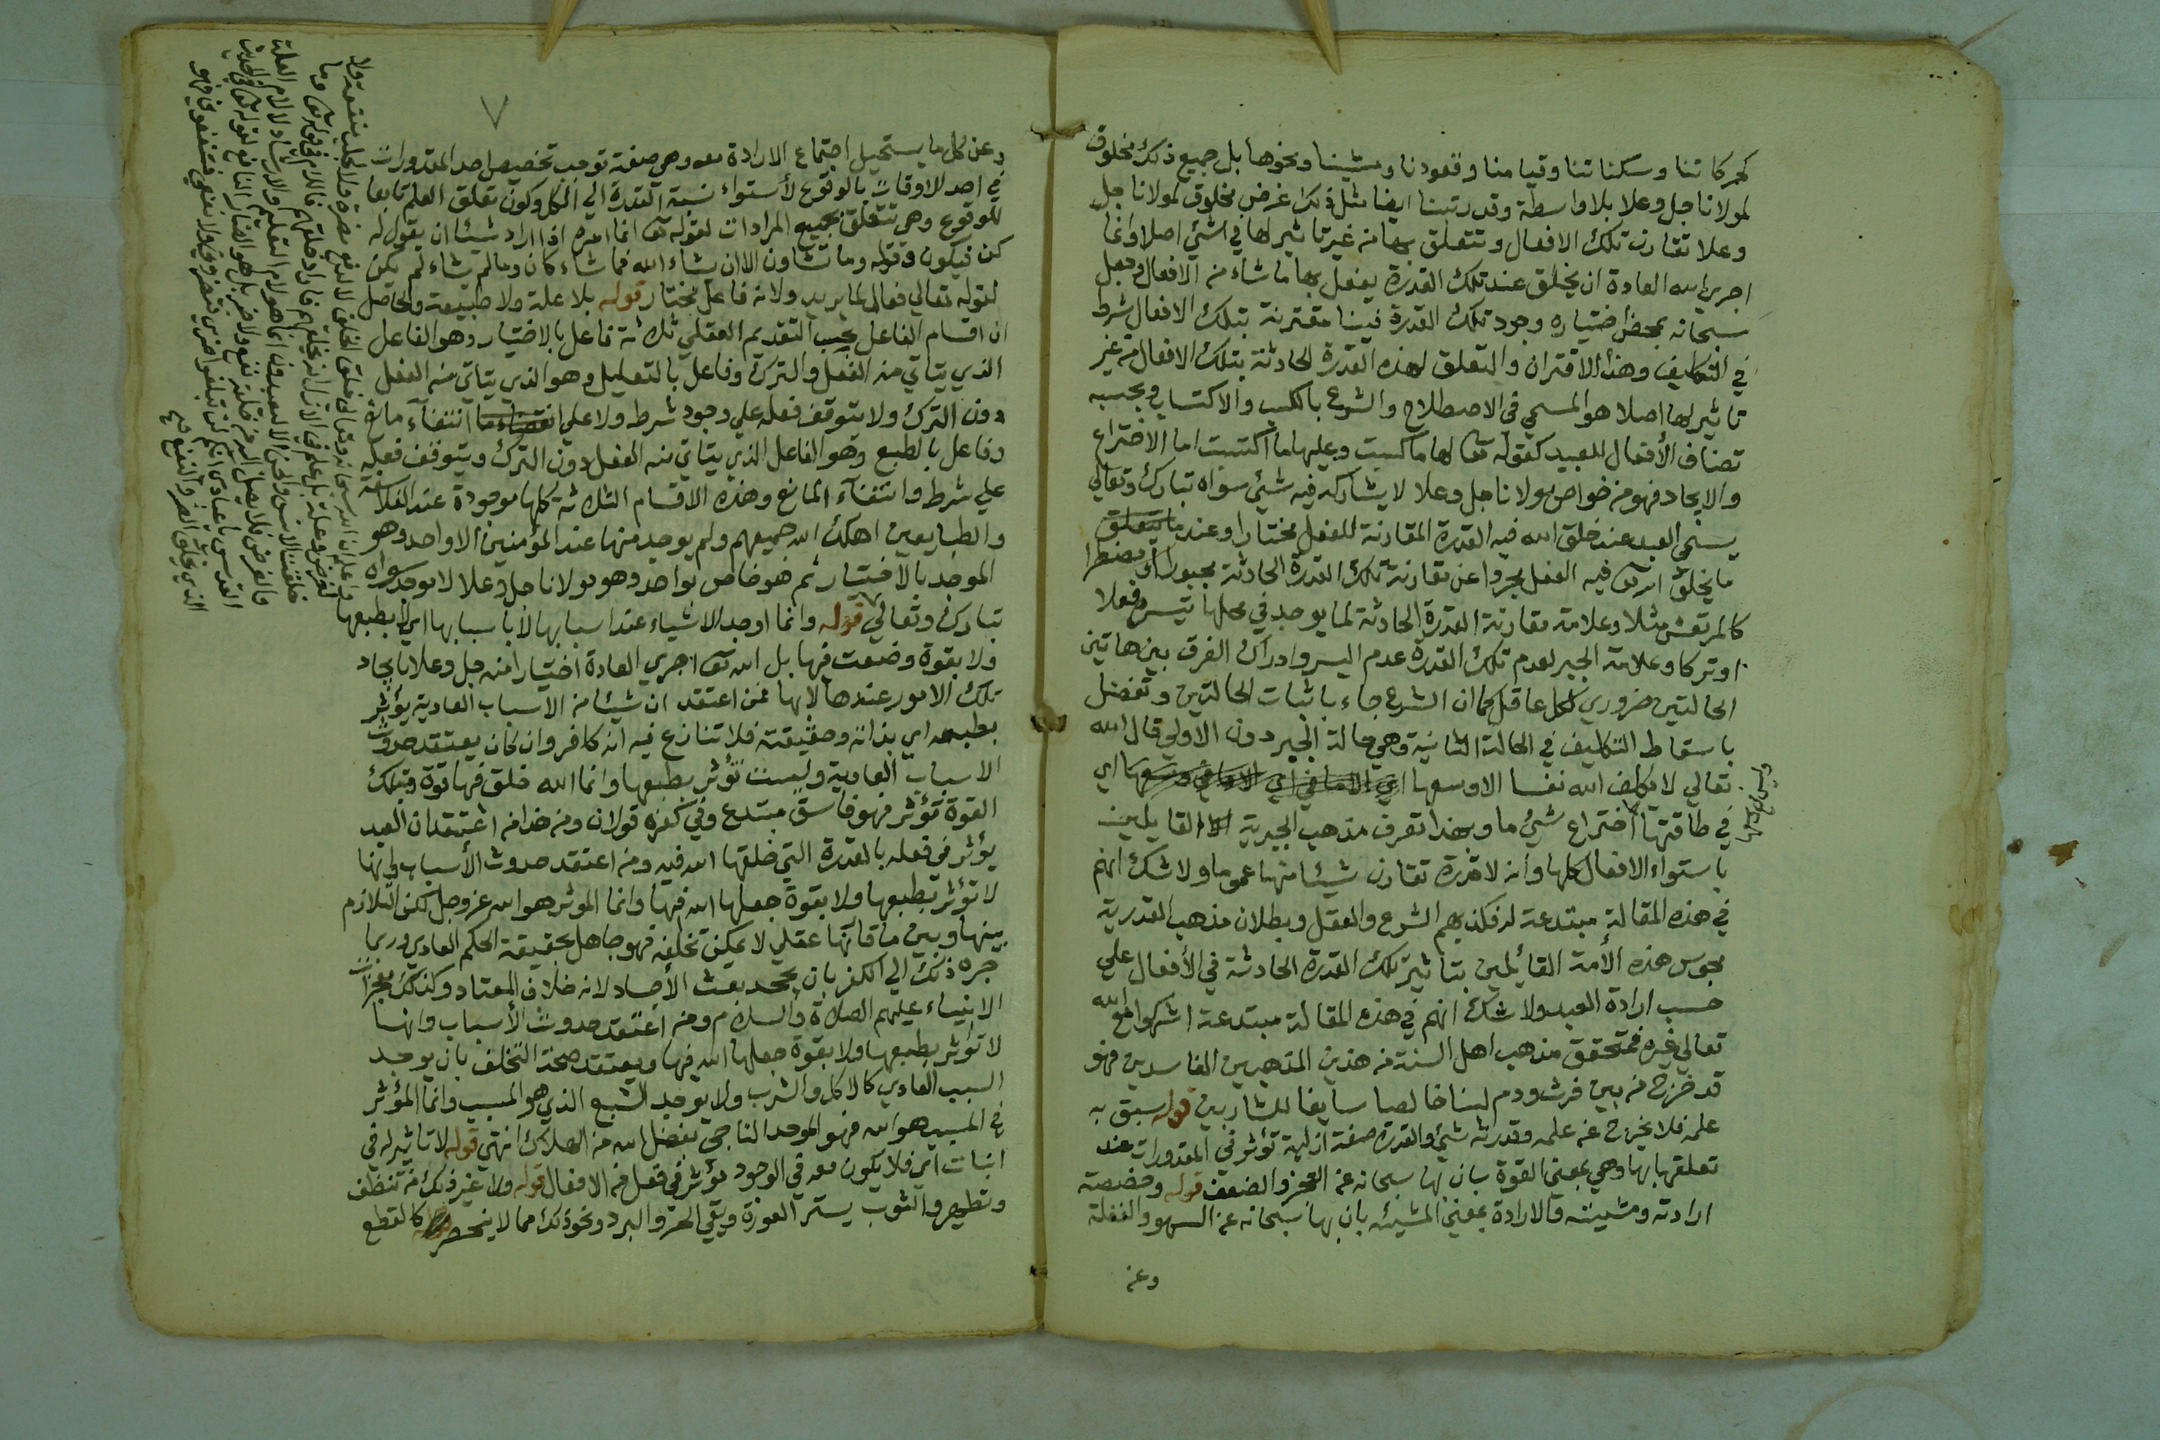 كحركاتنا وسكناتنا وقيامنا وقعودنا ومشينا ونحوها بل جميع ذلك مخلوق
لمولانا جل وعلا بلا واسطة وقدرتنا ايضا مثل ذلك عرض مخلوق لمولانا جل
وعلا تقارن تلك الافعال وتتعلق بها من غير تاثير لها في شئ اصلا وانما
اجرى الله العادة ان يخلق عند تلك القدرة يفعل بها ما شاء من الافعال وجعل
سبحانه بمحض اختياره وجود تلك القدرة فينا مقترنة بتلك الافعال شرطا
في التكليف وهذا الاقتران والتعلق لهذه القدرة الحادثة بتلك الافعال من غير
تاثير لها اصلا هو المسمى في الاصطلاح والشرع بالكسب والاكتساب وبحسبه
تضاف الأفعال للعبيد كقوله تعا لها ما كسبت وعليها ما اكتسبت اما الاختراع
والايجاد فهو من خواص مولانا جل وعلا لا يشاركه فيه شيئ سواه تبارك وتعالى
يسمى العبد عند خلق الله فيه القدرة المقارنة للفعل مختارا وعند ما يتعلق
ما يخلق الله تعا فيه الفعل مجردا عن مقارنة تلك القدرة الحادثة مجبورا او مضطرا
كالمرتعش مثلا وعلامة مقارنة القدرة الحادثة لما يوجد في محلها تيسره فعلا
او تركا وعلامة الجبر لعدم تلك القدرة عدم اليسر وادراك الفرق بين هاتين
الحالتين ضروري لكل عاقل كما ان الشرع جاء باثبات الحالتين وتفضل
باسقاط التكليف في الحالة الثانية وهي حالة الجبر دون الاولى قال الله
تعالى لا يكلف الله نفسا الا وسعها اي
في طاقتها اختراع شيئ ما وبهذا تعرف مذهب الجبرية القايلين
باستواء الافعال كلها وانه لا قدرة تقارن شيئا منها عموما ولا شك انهم
في هذه المقالة مبتدعة بله فكذبهم الشرع والعقل وبطلان مذهب القدرية
مجوس هذه الأمة القائلين بتاثير تلك القدرة الحادثة في الأفعال على
حسب ارادة العبد ولا شك انهم في هذه المقالة مبتدعة اشركوا مع الله
تعالى غيره فتحقق مذهب اهل السنة من هذين المذهبين الفاسدين فهو
قد خرج من بين فرث ودم لبنا خالصا سايغا للشاربين قوله سبق به
علمه فلا يخرج عن علمه وقدرته شيئ والقدرة صفة ازلية تؤثر في المقدورات عند
تعلقها بها وهي بمعنى القوة بان بها سبحانه عن العجز والضعف قوله وخصصته
ارادته ومشيئته والارادة بمعنى المشيئه بان بها سبحانه عن السهو والغفلة
وعن
٧
وعن كل ما يستحيل اجتماع الارادة معه وهي صفة توجب تخصيص احد المقدورات
في احد الاوقات بالوقوع لأستواء نسبة القدرة الى الكل وكون تعلق العلم تابعا
للوقوع وهي تتعلق بجميع المرادات لقوله تعا انما امره اذا اراد شيئا ان يقول له
كن فيكون وقوله وما تشاؤن الا ان يشاء الله فما شاء كان وما لم يشاء لم يكن
لقوله تعالى فعال لما يريد ولانه فاعل مختار قوله بلا علة ولا طبيعة والحاصل
ان اقسام الفاعل بحسب التقديم العقلي ثلاثة فاعل بالاختيار وهو الفاعل
الذي يتاتي منه الفعل والترك وفاعل بالتعليل وهو الذي يتاتي منه الفعل
دون الترك ولا يتوقف فعله على وجود شرط ولا على انتفآء مانع
وفاعل بالطبع وهو الفاعل الذي يتاتي منه الفعل دون الترك ويتوقف فعله
على شرط وانتفآء المانع وهذه الاقسام الثلاثة كلها موجودة عند الفلاسفة
والطبايعيين اهلك الله جميعهم ولم يوجد منها عند المؤمنين الا واحد وهو
الموجد بالاختيار ثم هو خاص بواحد وهو مولانا جل وعلا لا يوجد سواه
تبارك وتعالى قوله وانما اوجد الاشياء عند اسبابها لا باسبابها اي لا بطبعها
ولا بقوة وضعت فيها بل الله تعا اجرى العادة اختيارا منه جل وعلا بايجاد
تلك الامور عندها لا بها فمن اعتقد ان شيئا من الأسباب العادية يؤثر
بطبعه اي بذاته وحقيقته فلا تنازع فيه انه كافر وان كان يعتقد حدوث
الاسباب العادية وليست تؤثر بطبعها وانما الله خلق فيها قوة وبتلك
القوة تؤثر فهو فاسق مبتدع وفي كفره قولان ومن هذا من اعتقد ان العبد
يؤثر في فعله بالقدرة التي خلقها الله فيه ومن اعتقد حدوث الأسباب وانها
لا تؤثر بطبعها ولا بقوة جعلها الله فيها وانما المؤثر هو الله عز وجل لكن التلازم
بينها وبين ما قارنها عقلي لا يمكن تخلفه فهو جاهل بحقيقة الحكم العادي وربما
جره ذلك الى الكفر بان يجحد بعث الأجساد لانه خلاف المعتاد وكذلك معجزات
الانبياء عليهم الصلاة والسلام ومن اعتقد حدوث الأسباب وانها
لا تؤثر بطبعها ولا بقوة جعلها الله فيها ويعتقد صحة التخلف بان يوجد
السبب العادي كالاكل والشرب ولا يوجد الشبع الذي هو المسبب وانما المؤثر
في المسبب هو الله فهو الموحد الناجي بفضل الله من الهلاك انتهى قوله لا تاثير له في
اثبات اي فلا يكون معه في الوجود مؤثر في فعل من الافعال قوله ولا غير ذلك من تنظف
وتطهير والثوب يستر العورة ويقي الحر والبرد ونحو ذلك مما لا ينحصر كالقطع